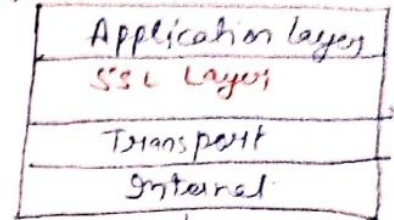 Application layer
SSL Layer
Transport
Internet